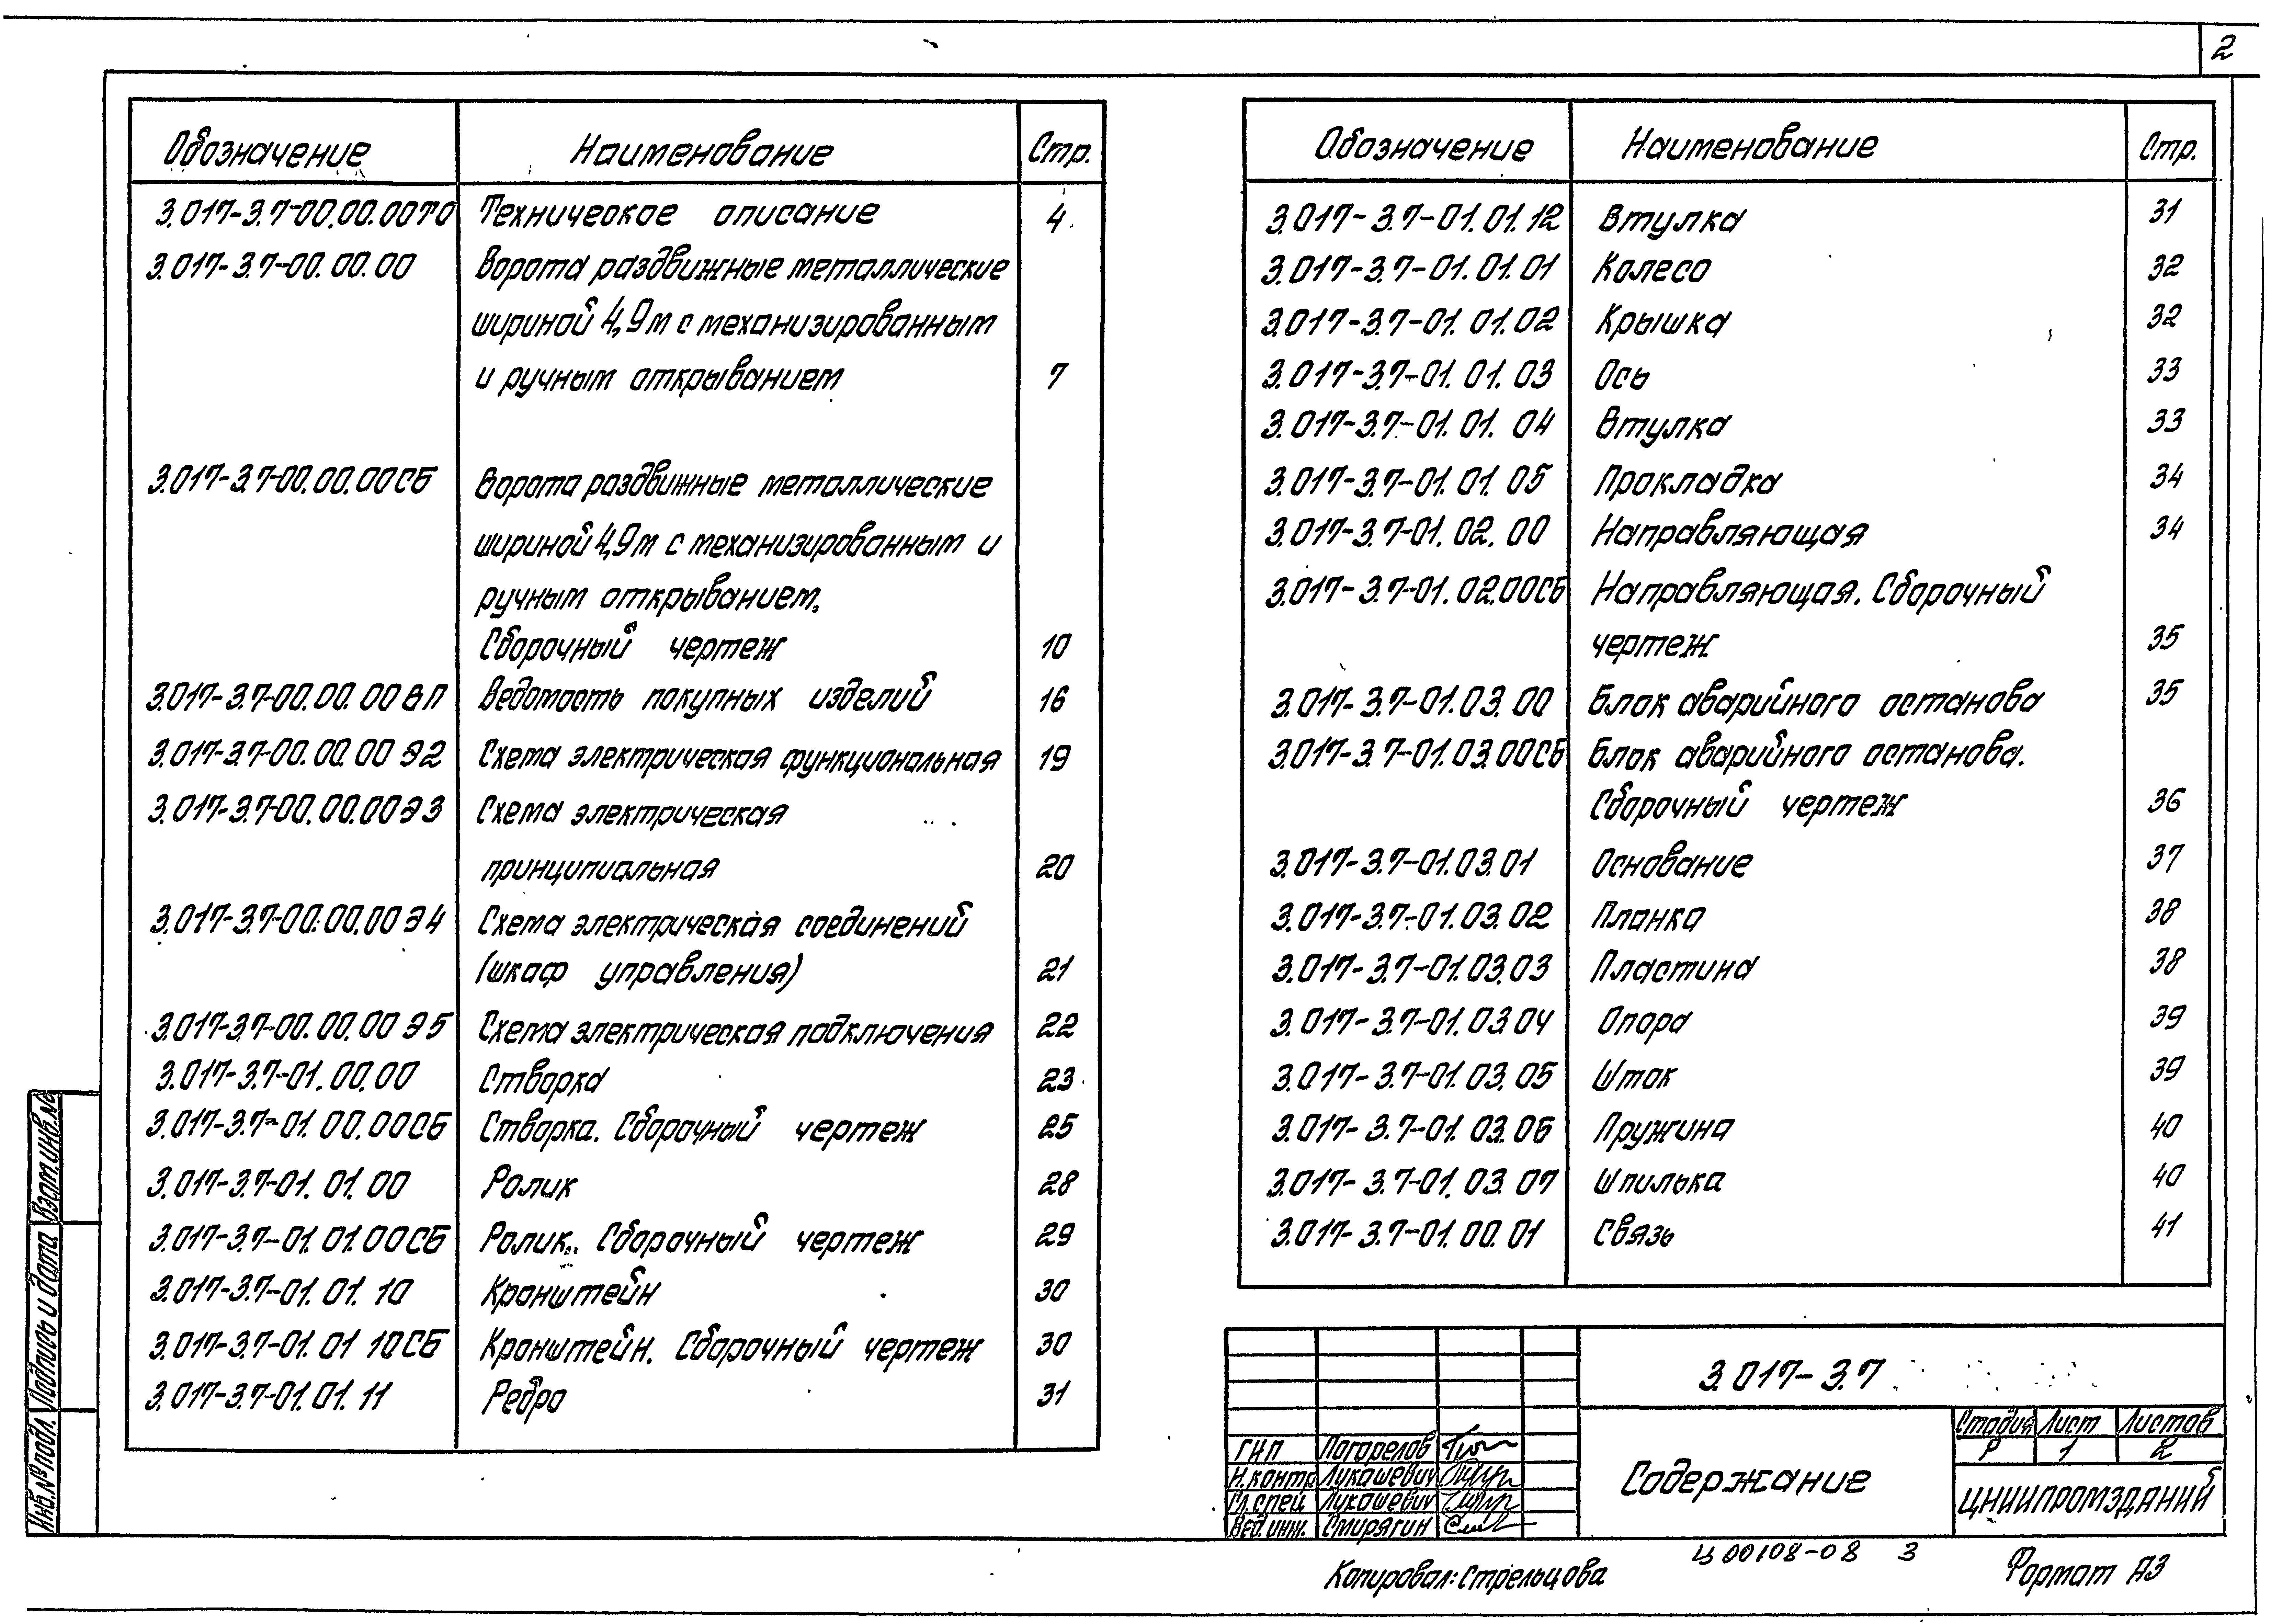 2
Обозначение Наименование Стр.
3.017-3.7-00.00.00ТО Техническое описание 4
3.017-3.7-00.00.00 Ворота раздвижные металлические
шириной 4,9м с механизированным
и ручным открыванием 7
3.017-3.7-00.00.00СБ Ворота раздвижные металлические
шириной 4,9м с механизированным и
ручным открыванием.
Сборочный чертеж 10
3.017-3.7-00.00.00ВП Ведомость покупных изделий 16
3.017-3.7-00.00.00Э2 Схема электрическая функциональная 19
3.017-3.7-00.00.00Э3 Схема электрическая
принципиальная 20
3.017-3.7-00.00.00Э4 Схема электрическая соединений
(шкаф управления) 21
3.017-3.7-00.00.00Э5 Схема электрическая подключения 22
3.017-3.7-01.00.00 Створка 23
3.017-3.7-01.00.00СБ Створка. Сборочный чертеж 25
3.017-3.7-01.01.00 Ролик 28
3.017-3.7-01.01.00СБ Ролик. Сборочный чертеж 29
3.017-3.7-01.01.10 Кронштейн 30
3.017-3.7-01.01 10СБ Кронштейн. Сборочный чертеж 30
3.017-3.7-01.01.11 Ребро 31
Обозначение Наименование Стр.
3.017-3.7-01.01.12 Втулка 31
3.017-3.7-01.01.01 Колесо 32
3.017-3.7-01.01.02 Крышка 32
3.017-3.7-01.01.03 Ось 33
3.017-3.7-01.01.04 Втулка 33
3.017-3.7-01.01.05 Прокладка 34
3.017-3.7-01.02.00 Направляющая 34
3.017-3.7-01.02.00СБ Направляющая. Сборочный
чертеж 35
3.017-3.7-01.03.00 Блок аварийного останова 35
3.017-3.7-01.03.00СБ Блок аварийного останова.
Сборочный чертеж 36
3.017-3.7-01.03.01 Основание 37
3.017-3.7-01.03.02 Планка 38
3.017-3.7-01.03.03 Пластина 38
3.017-3.7-01.03.04 Опора 39
3.017-3.7-01.03.05 Шток 39
3.017-3.7-01.03.06 Пружина 40
3.017-3.7-01.03.07 Шпилька 40
3.017-3.7-01.00.01 Связь 41
3.017-3.7
Стадия Лист Листов
Р 1 2
Содержание
ЦНИИПРОМЗДАНИЙ
ГИП Погорелов
Н.контр. Лукашевич
Гл.спец. Лукашевич
Вед.инж. Смирягин
Инв.№подл. Подпись и дата Взам.инв.№
Копировал: Стрельцова
Ц00108-08 3
Формат А3